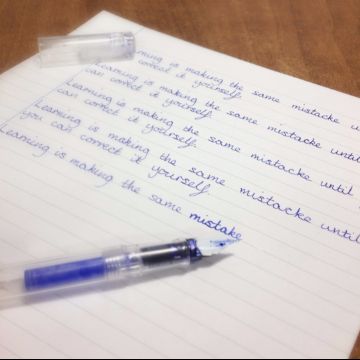 rning is making the same mistacke
can correct it yourself.
Learning is making the same mistacke until
can correct it yourself.
Learning is making the same mistacke until
you can correct it yourself
Learning is making the same mistacke until
you can correct it yourself
Learning is making the same mistake